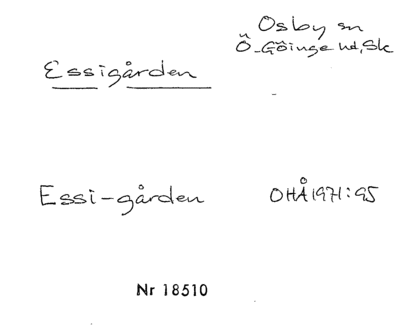 Osby sn
Ö-Göinge hd, Sk
Essigården
Essi-gården
OHÅ 1971:95
Nr 18510